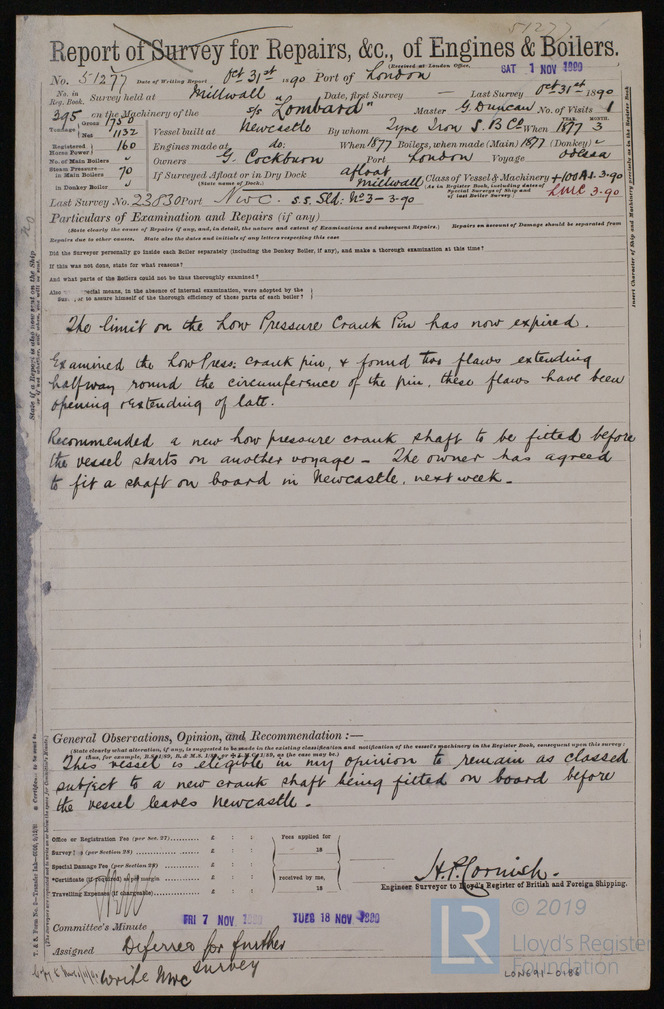 51277
Report of Survey for Repairs, &c., of Engines & Boilers.
(Received at London Office,
SAT 1 NOV 1890
No. 51277 Date of Writing Report Oct 31st 1890 Port of London
No. in Reg. Book. Survey held at Millwall Date, first Survey — Last Survey Oct 31st 1890
395 on the Machinery of the s/s "Lombard" Master G. Duncan No. of Visits 1
Tonnage Gross 1750 Net 1132 Vessel built at Newcastle By whom Tyne Iron S. B Co When 1877 3 YEAR. MONTH.
Registered Horse Power 160 Engines made at do: When 1877 Boilers, when made (Main) 1877 (Donkey) "
No. of Main Boilers " Owners G. Cockburn Port London Voyage Odessa
Steam Pressure in Main Boilers 70 If Surveyed Afloat or in Dry Dock afloat Millwall Class of Vessel & Machinery +100A1. 3-90
(State name of Dock.) (As in Register Book, including dates of Special Surveys of Ship and of last Boiler Survey) LMC 3-90
in Donkey Boiler "
Last Survey No. 23830 Port Nwc. s.s. Sld: No 3 - 3-90
Particulars of Examination and Repairs (if any)
(State clearly the cause of Repairs if any, and, in detail, the nature and extent of Examinations and subsequent Repairs.) Repairs on account of Damage should be separated from
Repairs due to other causes. State also the dates and initials of any letters respecting this case
Did the Surveyor personally go inside each Boiler separately (including the Donkey Boiler, if any), and make a thorough examination at this time?
If this was not done, state for what reasons?
And what parts of the Boilers could not be thoroughly examined?
Also special means, in the absence of internal examination, were adopted by the
to assure himself of the thorough efficiency of those parts of each boiler?
The limit on the Low Pressure Crank Pin has now expired.
Examined the Low Press: crank pin, & found two flaws extending
halfway round the circumference of the pin, these flaws have been
opening & extending of late.
Recommended a new low pressure crank shaft to be fitted before
the vessel starts on another voyage - The owner has agreed
to fit a shaft on board in Newcastle, next week.
General Observations, Opinion, and Recommendation :—
(State clearly what alteration, if any, is suggested to be made in the existing classification and notification of the vessel's machinery in the Register Book, consequent upon this survey;
This vessel is eligible in my opinion to remain as classed
subject to a new crank shaft being fitted on board before
the vessel leaves Newcastle.
Office or Registration Fee (per Sec. 27) £ : : Fees applied for
Survey (per Section 28) £ : : 18
Special Damage Fee (per Section 29) £ : :
Certificate (if required) as per margin £ : : received by me,
Travelling Expenses (if chargeable) £ : : 18
H. P. Cornish.
Engineer Surveyor to Lloyd's Register of British and Foreign Shipping.
Committee's Minute FRI 7 NOV 1890 TUES 18 NOV 1890
Assigned Deferred for further
survey
write Nwc
LR
© 2019
Lloyd's Register
Foundation
LON691-0186